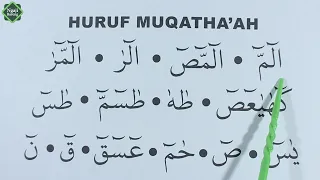 HURUF MUQATHA'AH
الٓمّٓ • الٓمّٓصٓ • الٓرٰ • الٓمّٓرٰ
كٓهٰيٰعٓصٓ • طٰهٰ • طٰسٓمّٓ • طٰسٓ
يٰسٓ • صٓ • حٰمٓ • عٓسٓقٓ • قٓ • نٓ